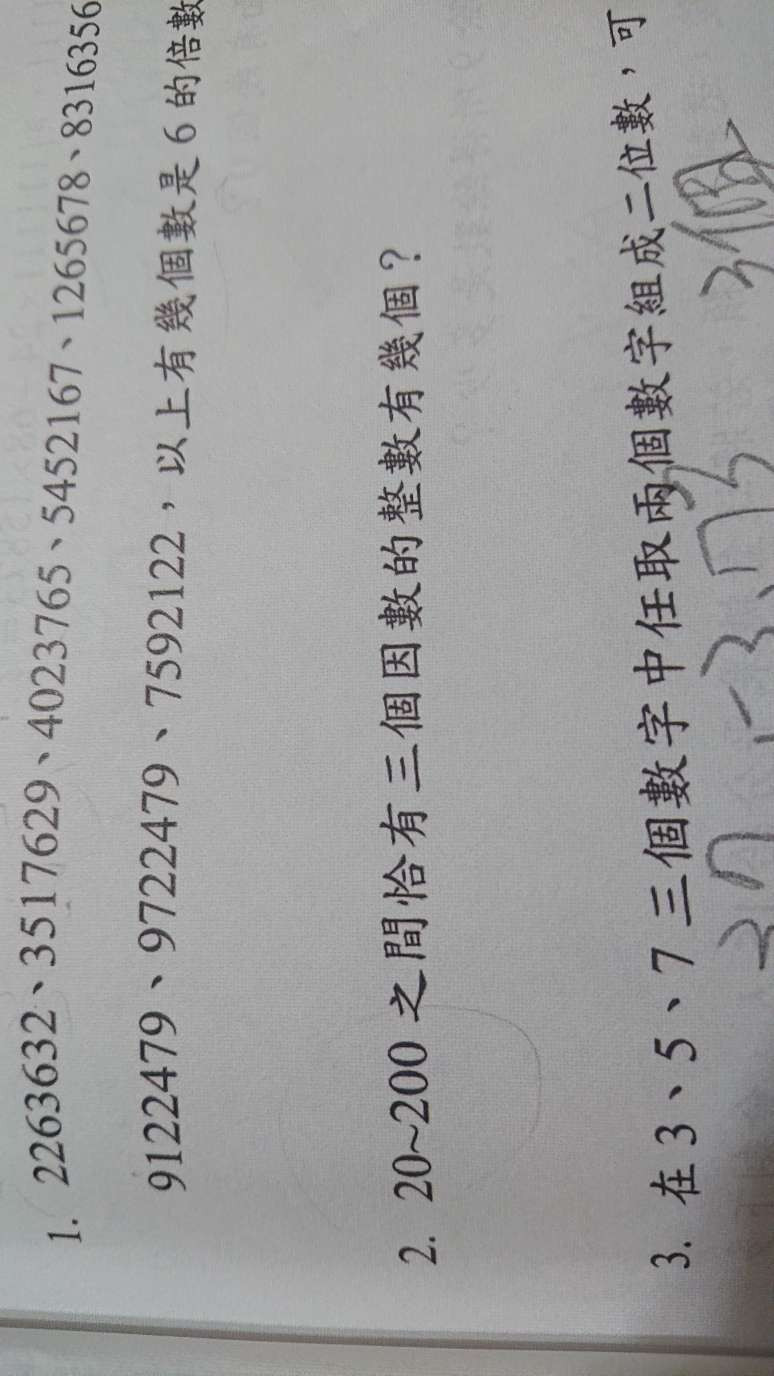 1. 2263632、3517629、4023765、5452167、1265678、8316356
9122479、9722479、7592122，以上有幾個數是 6 的倍數
2. 20~200 之間恰有三個因數的整數有幾個？
3. 在 3、5、7 三個數字中任取兩個數字組成二位數，可
37、53、73 3個